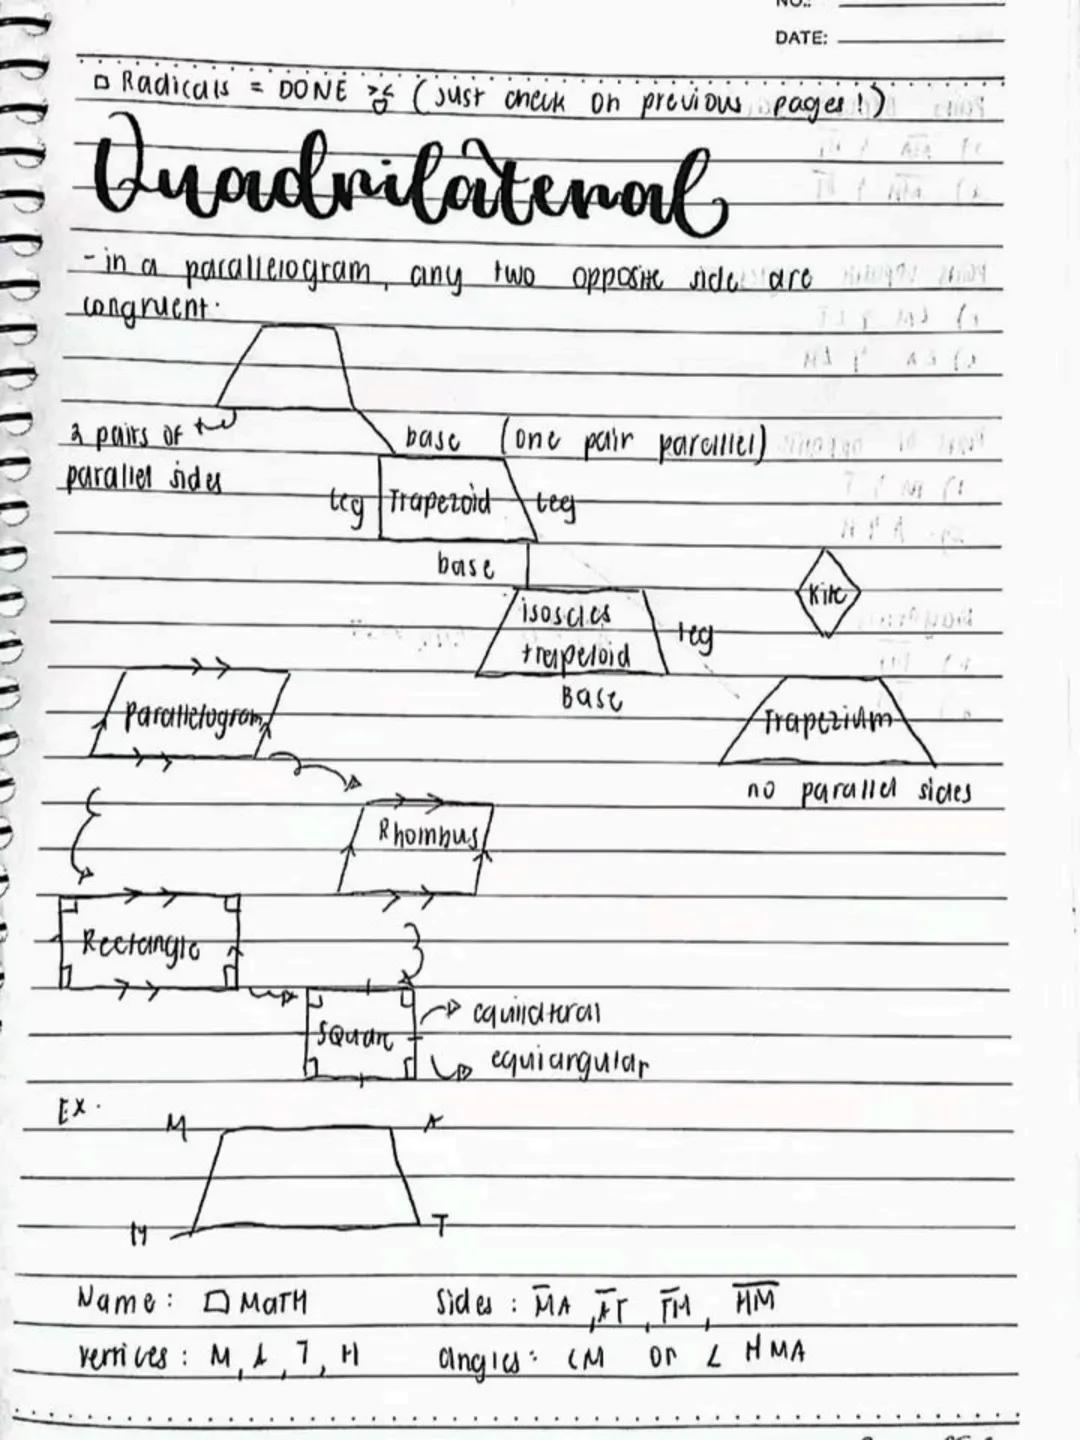 NO.:
DATE:
□ Radicals = DONE (Just check on previous pages!)
Quadrilateral
- in a parallelogram, any two opposite side are
congruent.
2 pairs of
parallel sides
base (one pair parallel)
leg Trapezoid leg
base
Kite
isosceles
trapezoid
leg
Base
Parallelogram
Trapezium
no parallel sides
Rhombus
Rectangle
Square
equilateral
equiangular
Ex.
M A
H T
Name: □ MATH Sides: MA, AT, TH, HM
vertices: M, A, T, H angles: ∠M or ∠HMA